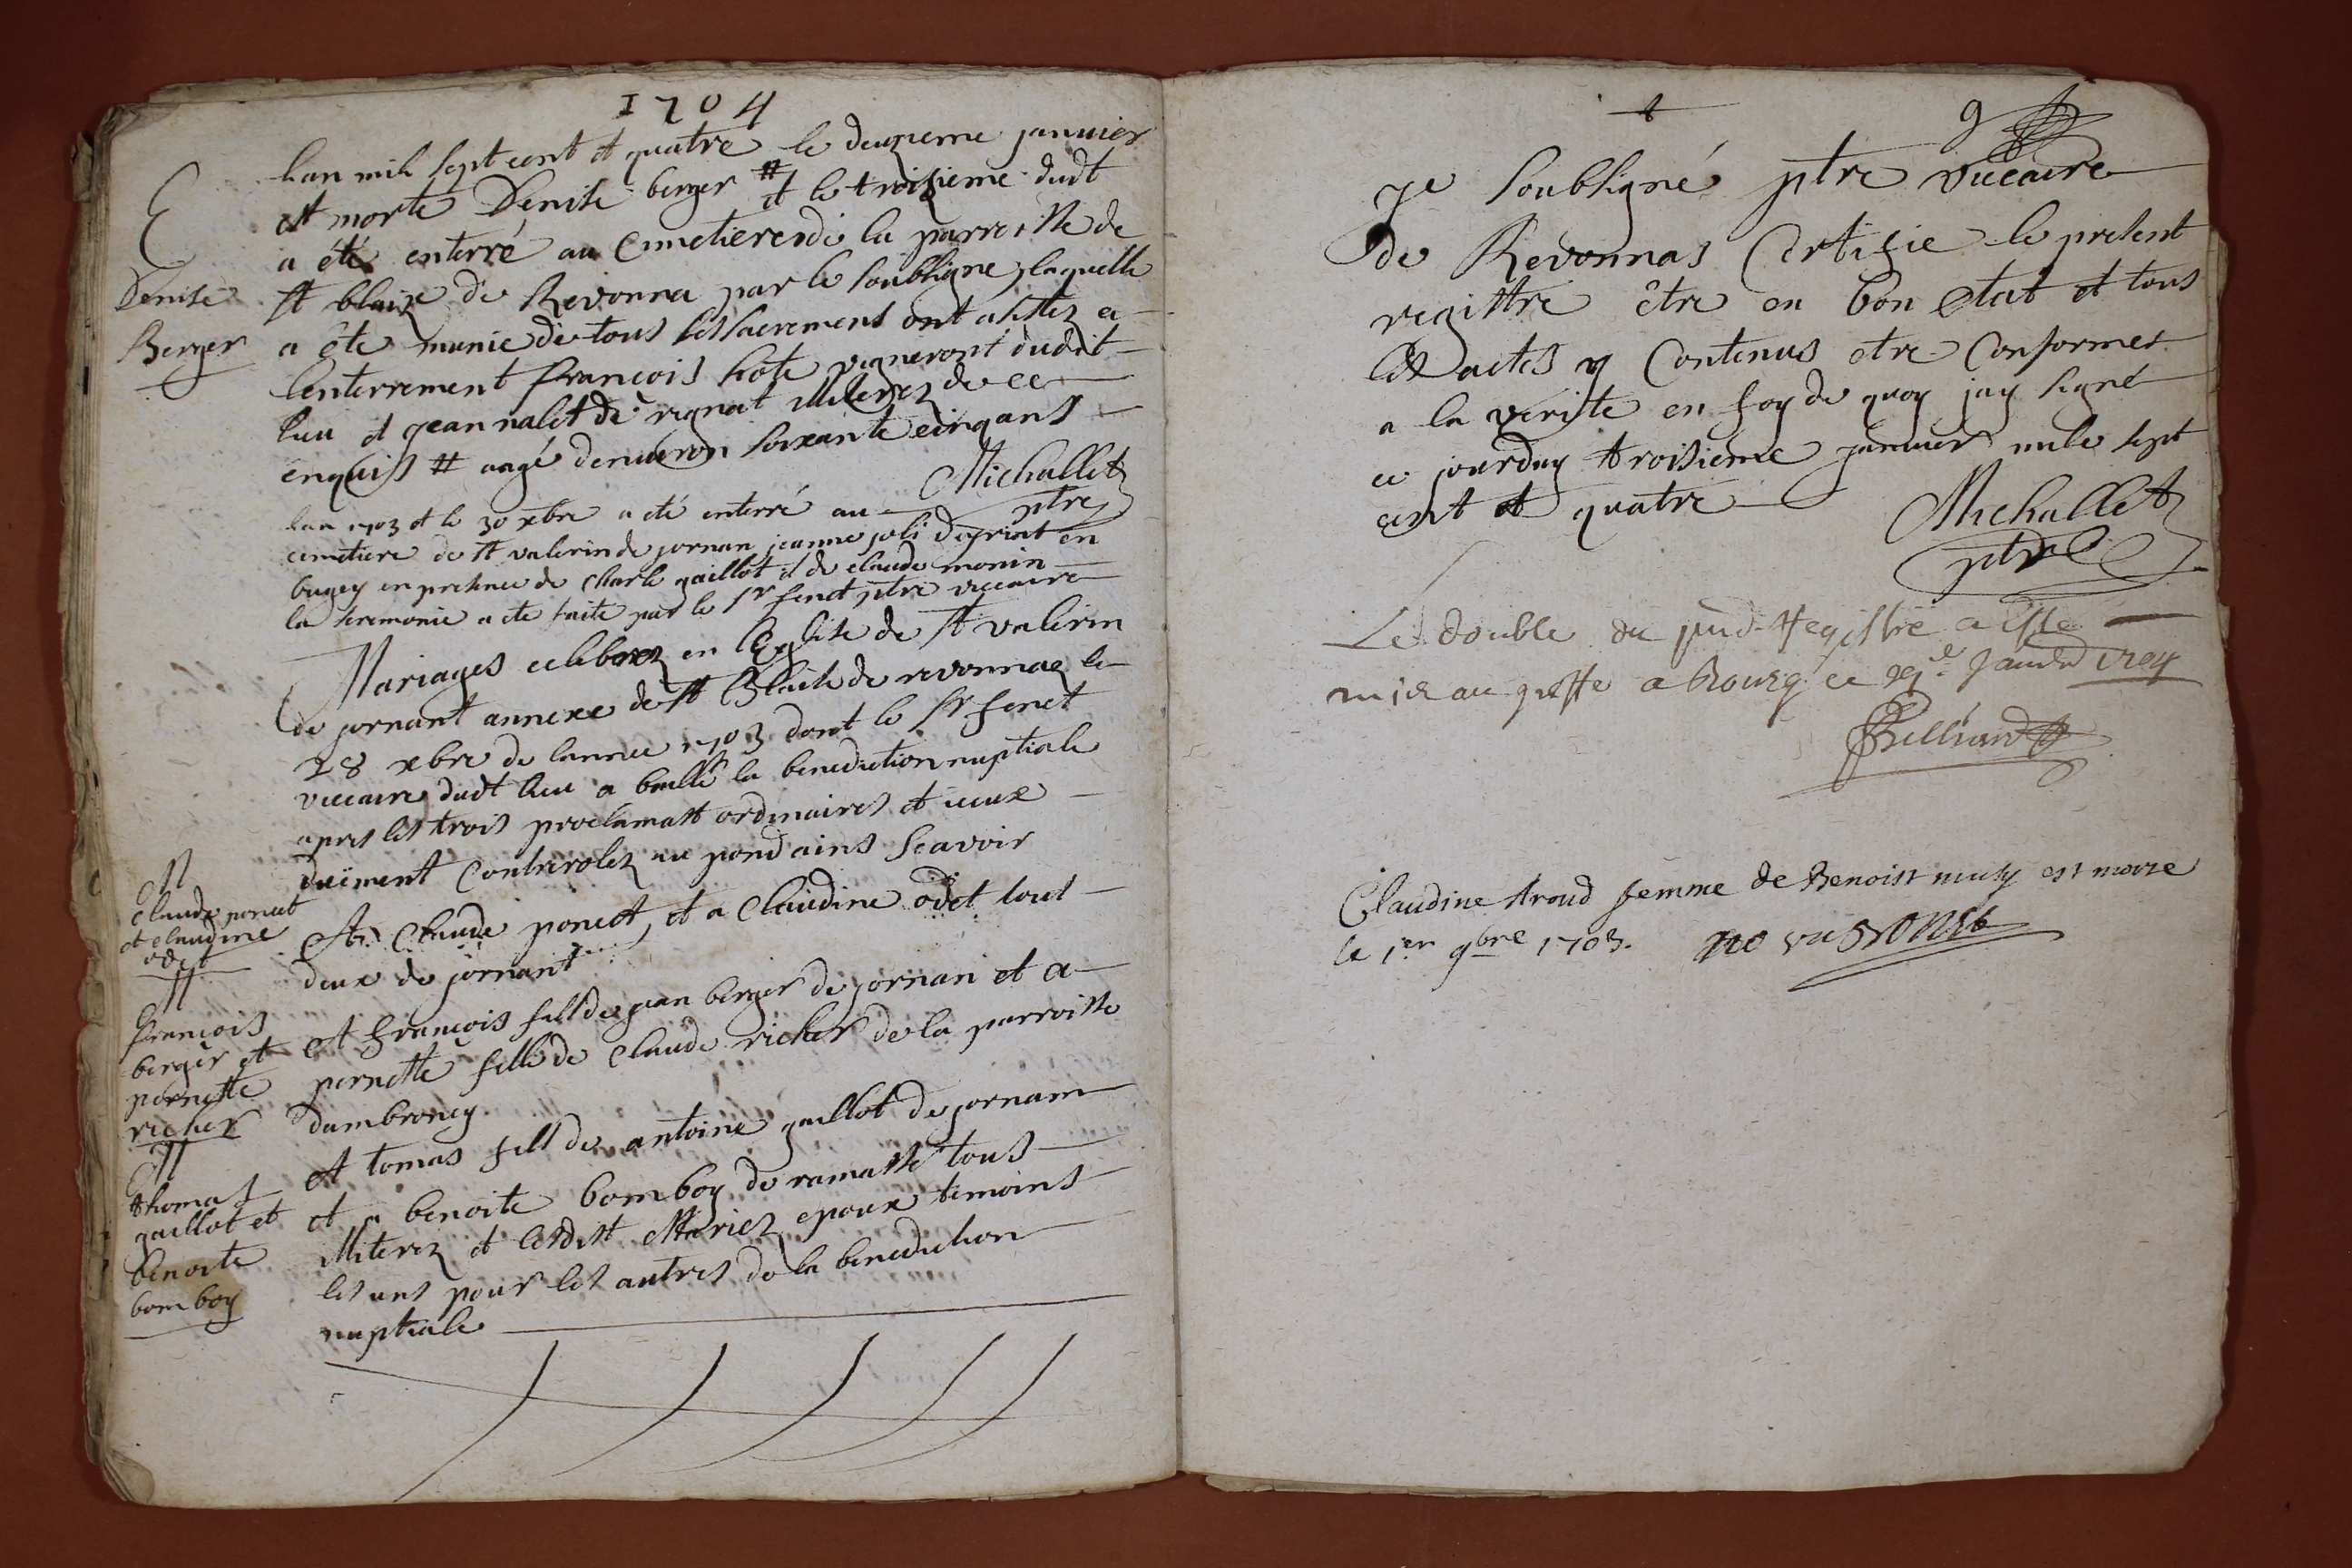 1704
E
Denise
Berger
lan mil sept cent et quatre le deuzieme janvier
est morte Denise berger # et le troisieme dudt
a été enterré au Cimetiere de la parroisse de
st blaize de Revonna par le soubsigne, laquelle
a ête munie de tous les sacrements ont assistez a
lenterrement francois hote vigneront dudit
lieu et jean nalet de rignat illiterez de ce
enquis # aagé denuiron soixante cinq ans
Michallet
ptre
lan 1703 et le 30 xbre a été enterré au
cimetiere de st valerin de jornan jeanne joli depriat en
bugey en presence de Charle gaillot et de claude monin
la seremonie a ete faite par le sr fenet ptre viccaire
Mariages celebrez en lEglise de st valerin
de jornant annexe de st Blaise de revonnaz le
28 xbre de lannee 1703 dont le sr fenet
viccaire dudt lieu a baillé la benediction nuptiale
apres les trois proclamast ordinaires et iceux
duëment Contrerolez au pondains Scavoir
M
claude ponet
et claudine
odet
A Claude ponet, et a Claudine odet tout
deux de jornant
M
francois
berger et
pernette
richer
et francois fils de jean berger de jornan et a
pernette fille de Claude richer de la parroisse
dambroney
M
thomas
gaillot et
benoite
bomboy
et tomas fils de antoine gaillot de jornam
et a benoite bomboy de ramasse tous
illiterez et lesdist Mariez epoux temoins
les uns pour les autres de la benediction
nuptiale
9
Je soubsigné ptre viccaire
de Revonnas Certifie le present
registre être en bon etat et tous
les actes y Contenus etre Conformes
a la verite en foy de quoy jay signé
ce jourduy troisieme janvier mile sept
cent et quatre
Michallet
ptre
Le double du pnd. Registre a esté
mis au greffe a Bourg ce janvier 1704
Claudine troud femme de Benoist musy est morte
le 1er 9bre 1703.